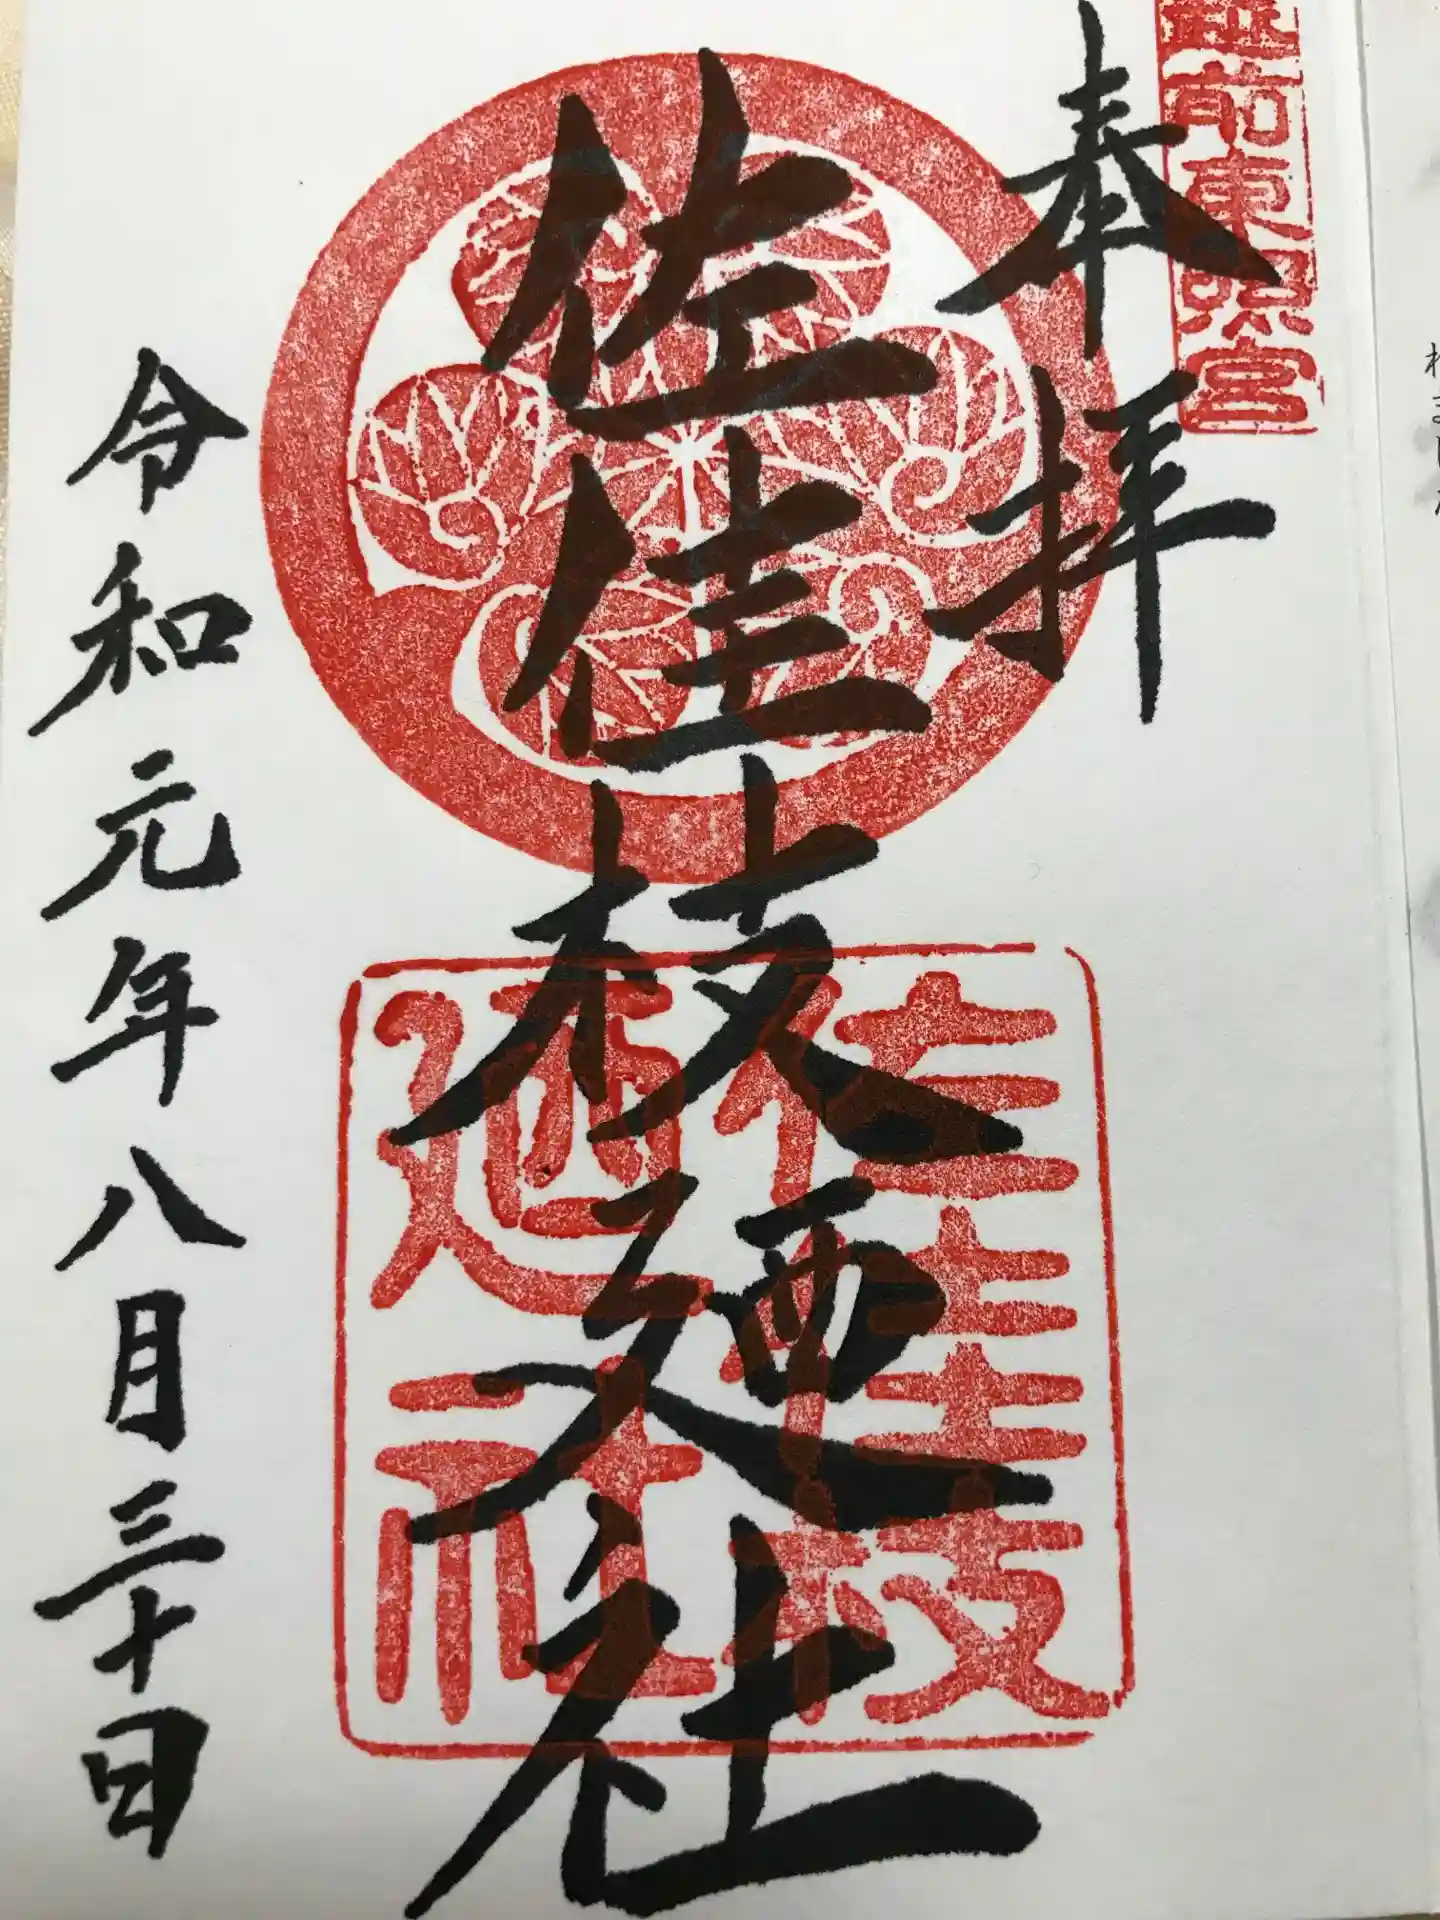 越前東照宮
奉拝
佐佳枝廼社
佐佳枝
廼社
令和元年八月三十日